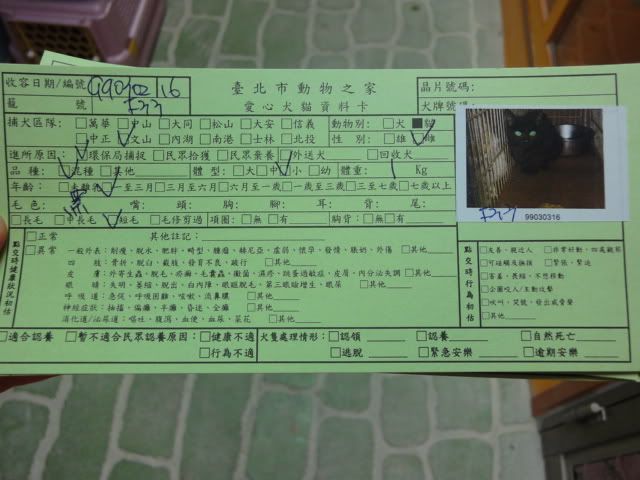 收容日期/編號 990302/16 臺北市動物之家 晶片號碼:
籠 號 F23 愛心犬貓資料卡 犬牌號碼:
捕犬區隊: □萬華 □中山 □大同 □松山 □大安 □信義 動物別: □犬 ■貓
□中正 □文山 □內湖 □南港 □士林 □北投 性 別: □雄 □雌
進所原因: □環保局捕捉 □民眾拾獲 □民眾棄養 □外送犬 □回收犬
品 種: □混種 □其他 體型: □大 □中 □小 □幼 體重: 1 Kg
年齡: □未離乳 □一至三月 □三月至六月 □六月至一歲 □一歲至三歲 □三至七歲 □七歲以上
毛色: 黑 嘴: 頭: 胸: 腳: 耳: 背: 尾:
□長毛 □中長毛 □短毛 □毛修剪過 項圈: □無 □有 胸背: □無 □有
F23 99030316
點交時健康狀況初估
□正常 其他註記:
□異常 一般外表: 削瘦、脫水、肥胖、畸型、腫瘤、赫尼亞、虛弱、懷孕、發情、脹奶、外傷 □其他
四 肢: 骨折、脫臼、截肢、發育不良、跛行 □其他
皮 膚: 外寄生蟲、脫毛、疥癬、毛囊蟲、黴菌、濕疹、跳蚤過敏症、皮屑、內分泌失調 □其他
眼 睛: 失明、萎縮、脫出、白內障、眼瞼脫毛、第三眼瞼增生、眼屎 □其他
呼 吸 道: 急促、呼吸困難、咳嗽、流鼻膿 □其他
神經症狀: 抽搐、偏癱、半癱、昏迷、全癱 □其他
消化道/泌尿道: 嘔吐、腹瀉、血便、血尿、菜花 □其他
點交時行為初估
□友善、親近人 □非常好動、四處觀察
□可碰觸及撫摸 □緊張、緊迫
□害羞、畏縮、不想移動
□企圖咬人/主動攻擊
□吠叫、哭號、發出威脅聲
□其他
□適合認養 □暫不適合民眾認養原因: □健康不適 犬隻處理情形: □認領 □認養 □自然死亡
□行為不適 □逃脫 □緊急安樂 □逾期安樂